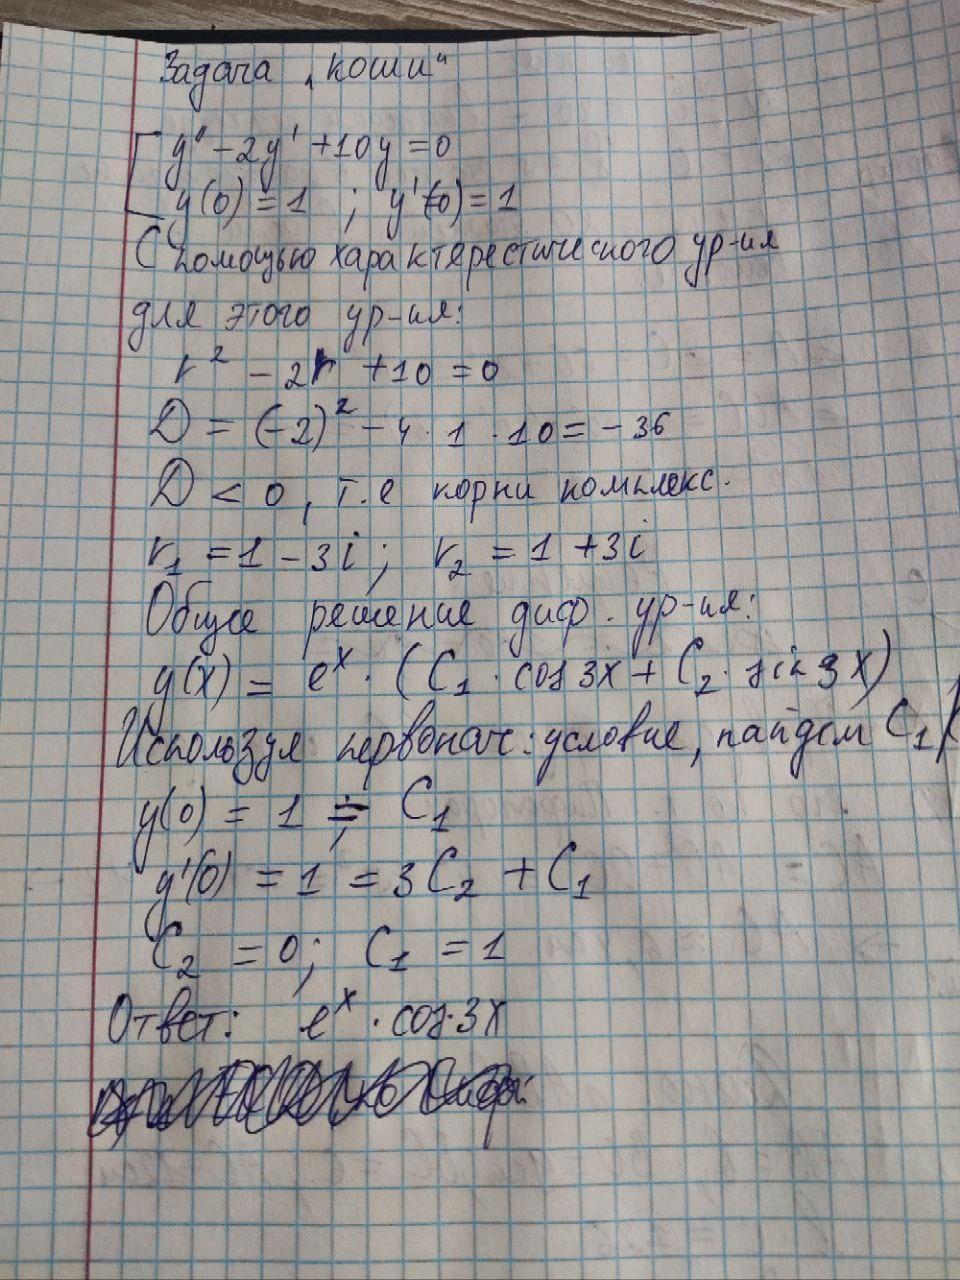 Задача „Коши“
y'' - 2y' + 10y = 0
y(0) = 1 ; y'(0) = 1
С помощью характерестического ур-ия
для этого ур-ия:
r² - 2r + 10 = 0
D = (-2)² - 4 · 1 · 10 = - 36
D < 0, т.е корни комплекс.
r₁ = 1 - 3i ; r₂ = 1 + 3i
Общее решение диф. ур-ия:
y(x) = eˣ · (C₁ · cos 3x + C₂ · sin 3x)
Используя первонач. условие, найдем C₁
y(0) = 1 = C₁
y'(0) = 1 = 3C₂ + C₁
C₂ = 0; C₁ = 1
Ответ: eˣ · cos·3x